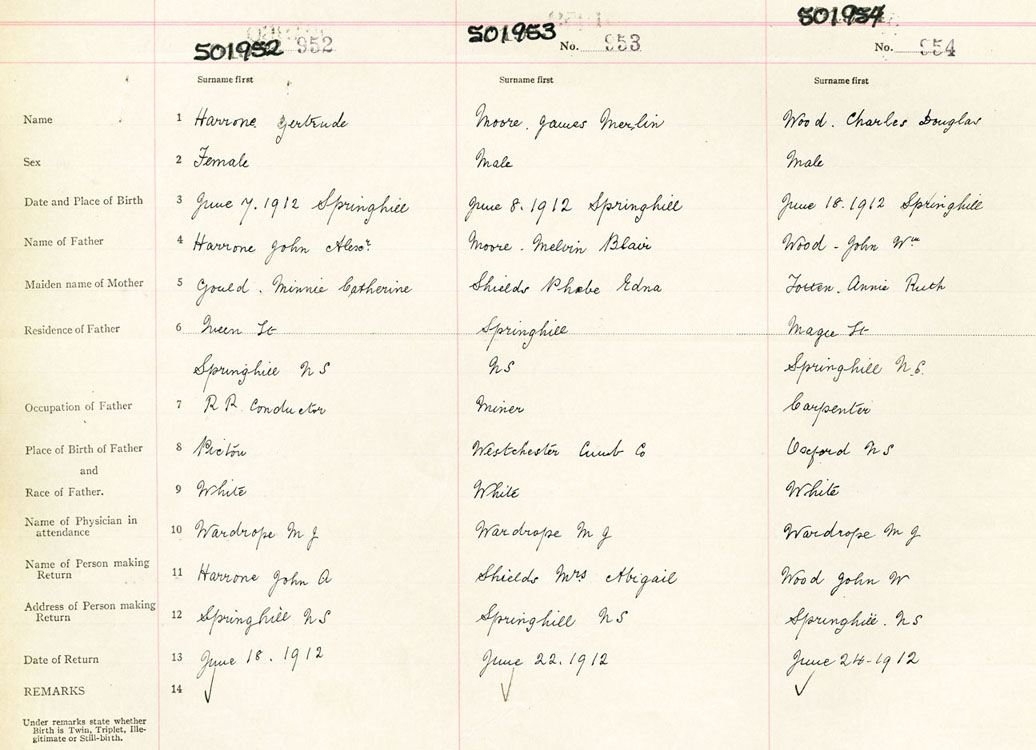 501952 952
501953
No. 953
501954
No. 954
Surname first Surname first Surname first
Name 1 Harrone Gertrude Moore. James Merlin Wood. Charles Douglas
Sex 2 Female Male Male
Date and Place of Birth 3 June 7. 1912 Springhill June 8. 1912 Springhill June 18. 1912 Springhill
Name of Father 4 Harrone John Alexr Moore. Melvin Blair Wood - John Wm
Maiden name of Mother 5 Gould. Minnie Catherine Shields Phebe Edna Totten. Annie Ruth
Residence of Father 6 Queen St Springhill Magee St
Springhill N S N S Springhill N.S.
Occupation of Father 7 R R. Conductor Miner Carpenter
Place of Birth of Father 8 Pictou Westchester Cumb Co Oxford N S
and
Race of Father. 9 White White White
Name of Physician in
attendance 10 Wardrope M J Wardrope M J Wardrope M J
Name of Person making
Return 11 Harrone John A Shields Mrs Abigail Wood John W
Address of Person making
Return 12 Springhill N S Springhill N S Springhill. N S
Date of Return 13 June 18. 1912 June 22. 1912 June 24-1912
REMARKS 14
Under remarks state whether
Birth is Twin, Triplet, Ille-
gitimate or Still-birth.